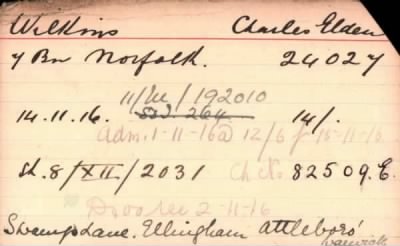 Wilkins Charles Elden
7 Bn Norfolk. 24027
11/M/192010
14.11.16. 264 14/.
Adm. 1-11-16 @ 12/6 f 15-11-16
Sh. 8/XII/2031 Ch et. 82509.E.
2-11-16
Swamp Lane. Ellingham Attleboro'